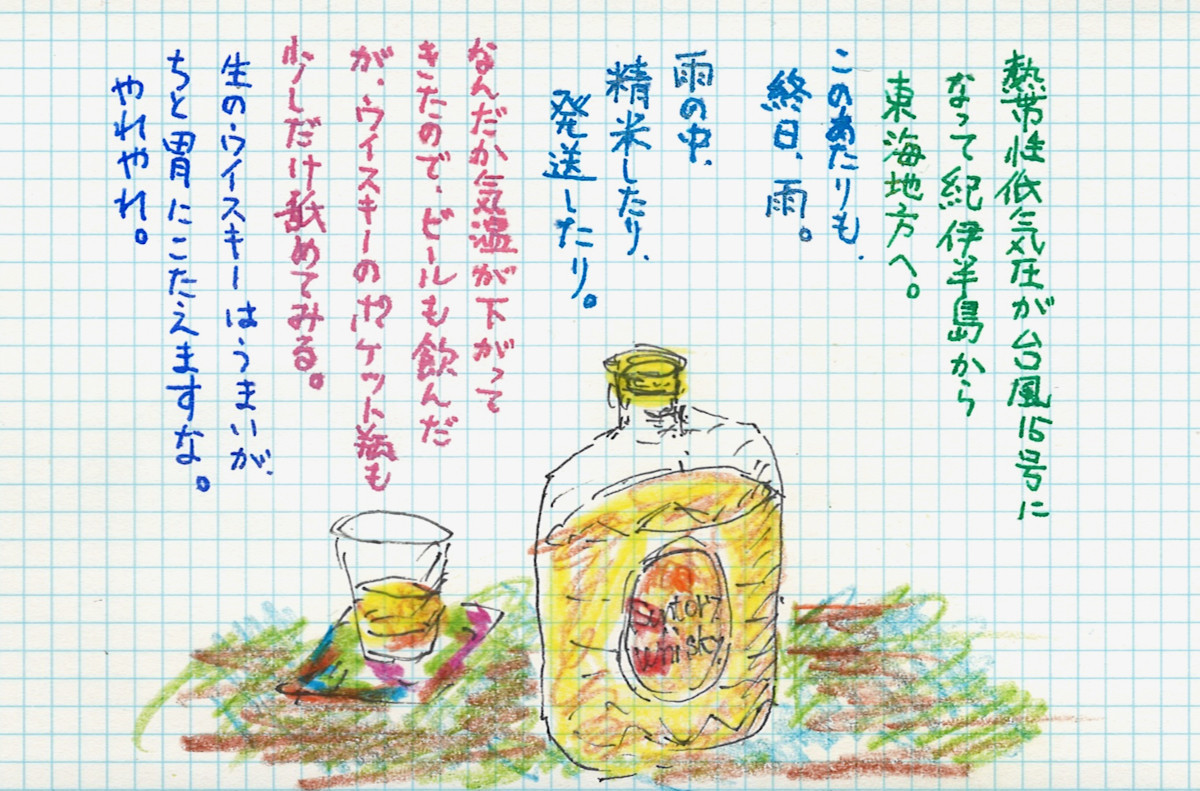 熱帯性低気圧が台風15号に
なって紀伊半島から
東海地方へ。
このあたりも、
終日、雨。
雨の中、
精米したり、
発送したり。
なんだか気温が下がって
きたので、ビールも飲んだ
が、ウイスキーのポケット瓶も
少しだけ舐めてみる。
生のウイスキーはうまいが、
ちと胃にこたえますな。
やれやれ。
Suntory
Whisky